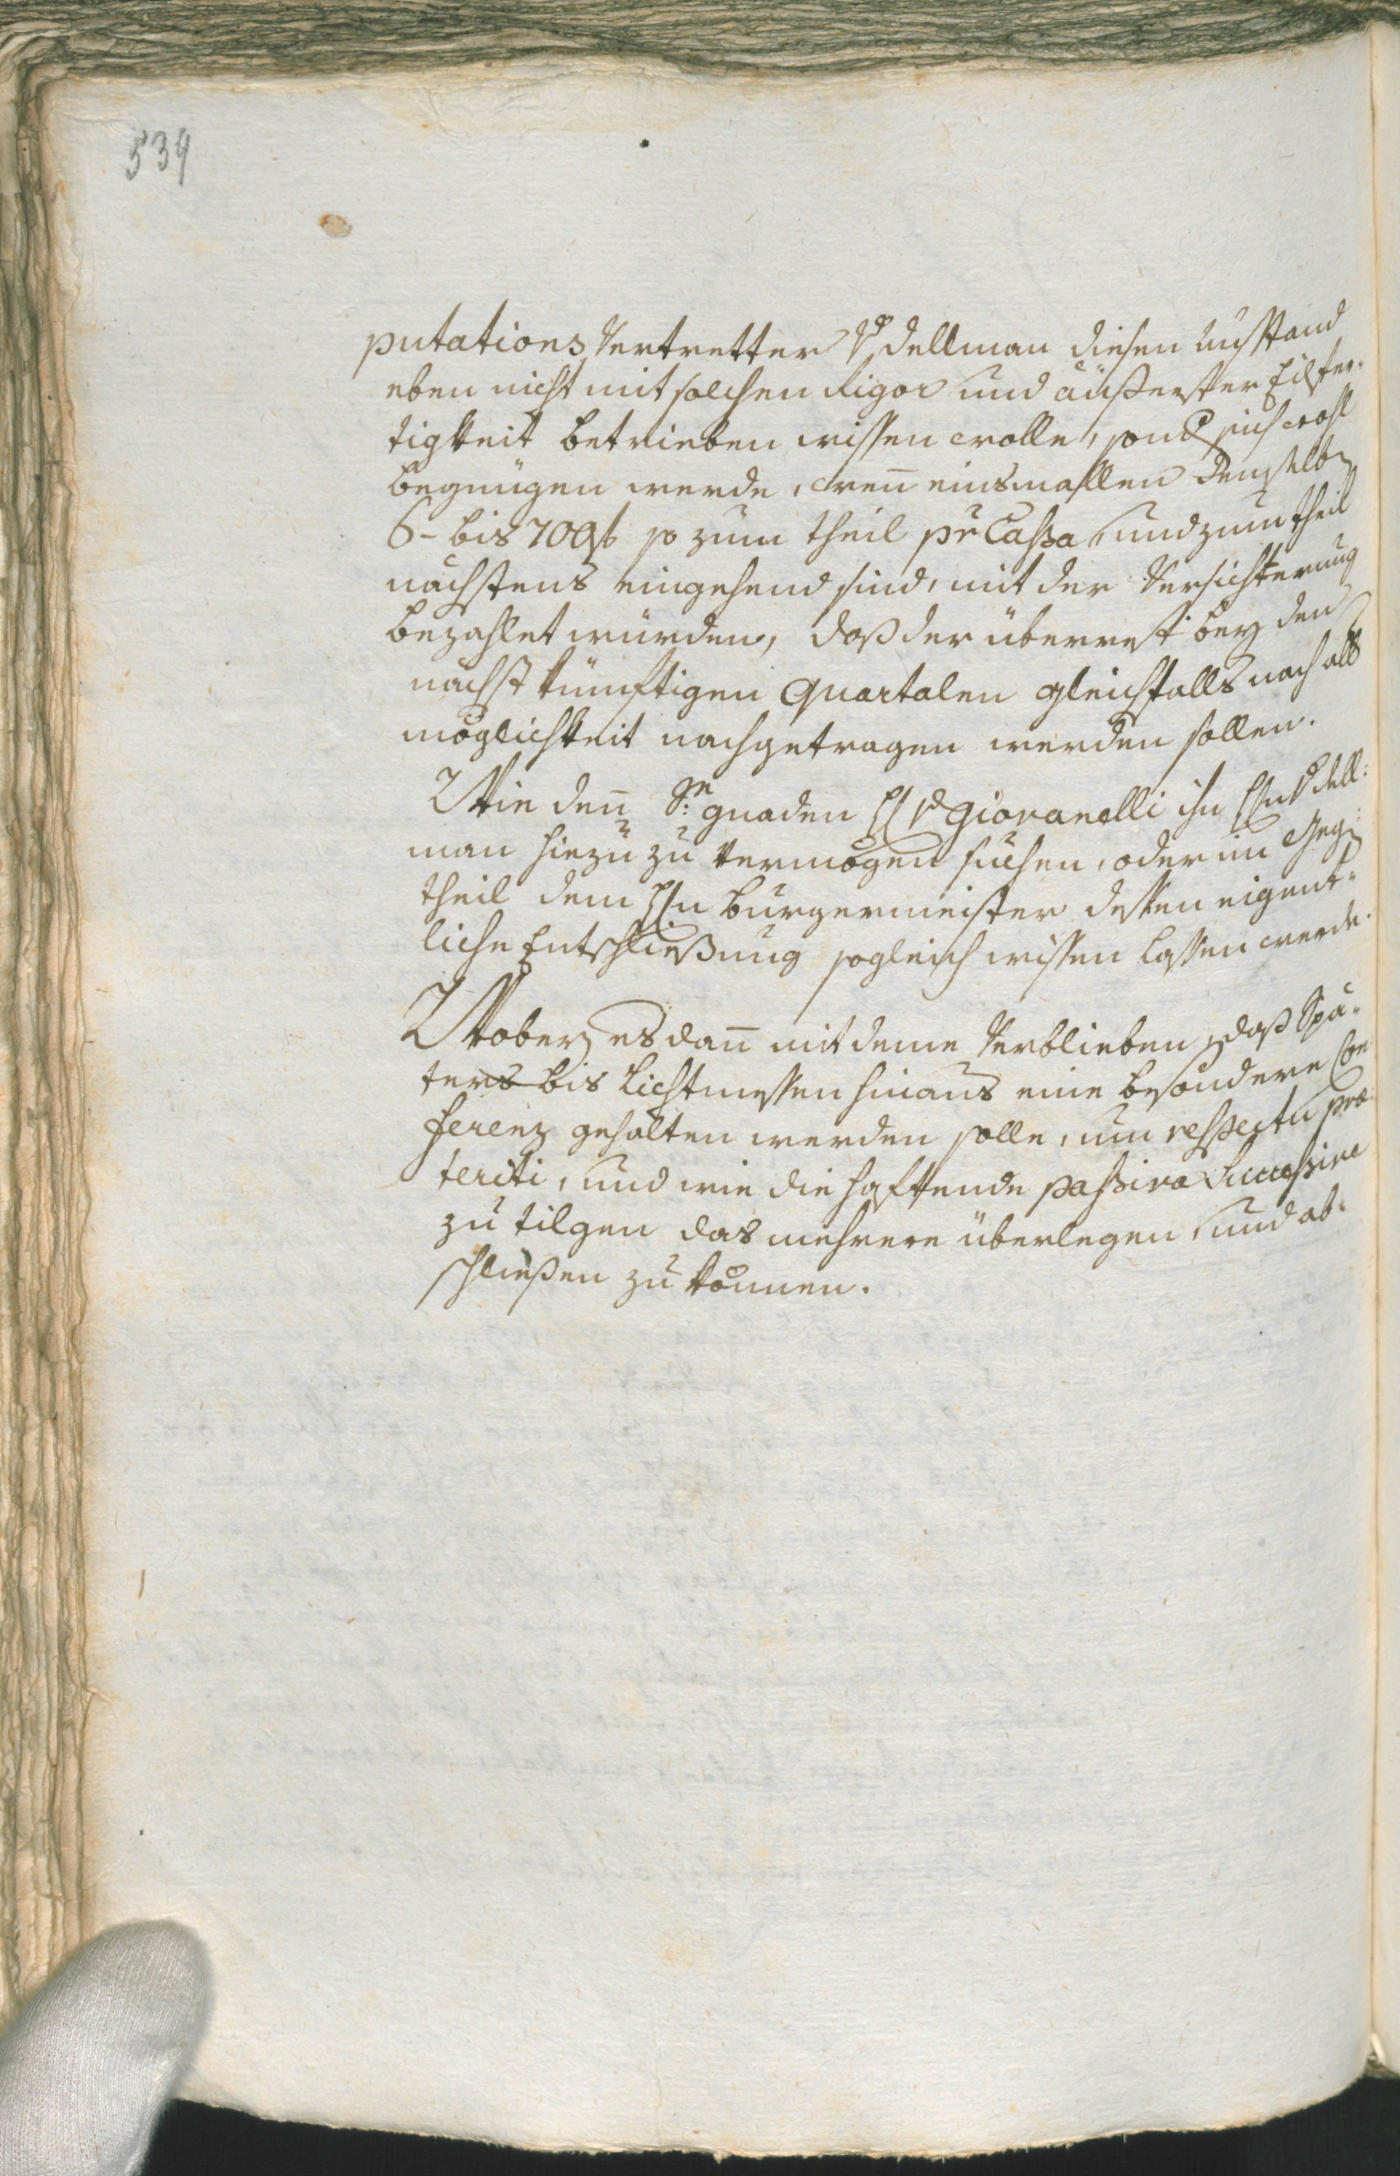 539
putations Vertretter V. Dellman diesen Ausstand
eben nicht mit solchen Rigor und äußerster Eilfer-
tigkeit betrieben wissen wolle, sond sich wohl
begnügen werde, wen̄ einsmahlen demselben
6- bis 700 f so zum theil pr Cassa, und zum theil
nächstens eingehend sind, mit der Versicherung
bezahlet würden, daß der überrest bey den
nächst künfftigen Quartalen gleichfalls nach all
möglichkeit nachgetragen werden sollen.
Wie den̄ Se. gnaden H V Giovanelli ihn Hn V Dell-
man hiezu zu vermögen suchen, oder im Gegen
theil dem Hn burgermeister dessen eigent-
liche Entschließung sogleich wissen lassen werde.
Wobey es dan̄ mit deme Verblieben, daß Spä-
ters bis Lichtmessen hinaus eine besondere Con
ferenz gehalten werden solle, um respectu præ
teriti, und wie die hafftende passiva Successive
zu tilgen das mehrere überlegen, und ab-
schließen zu können.